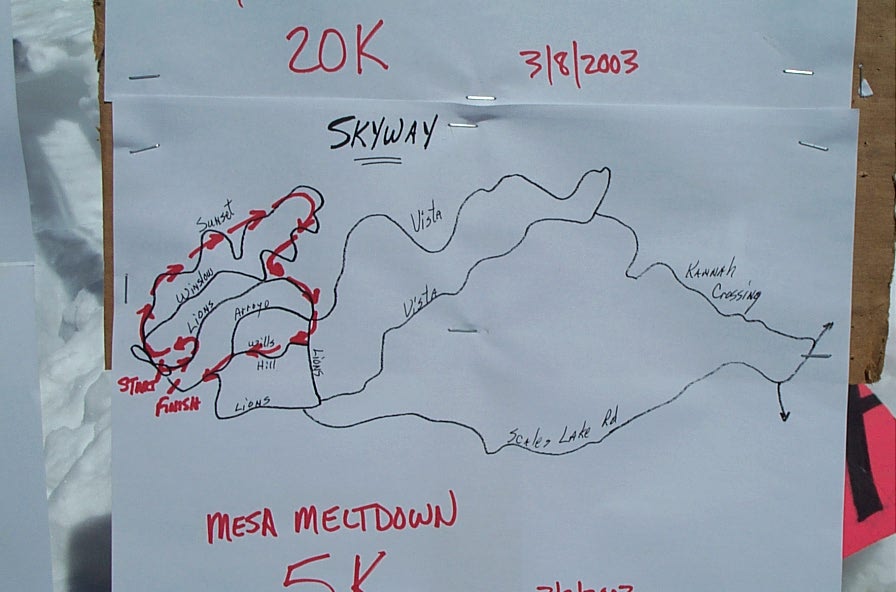 20K
3/8/2003
SKYWAY
Sunset
Vista
Winslow
Lions
Arroyo
Vista
KANNAH
Crossing
Wills
Hill
LIONS
START
FINISH
LIONS
Scales Lake Rd
MESA MELTDOWN
5K